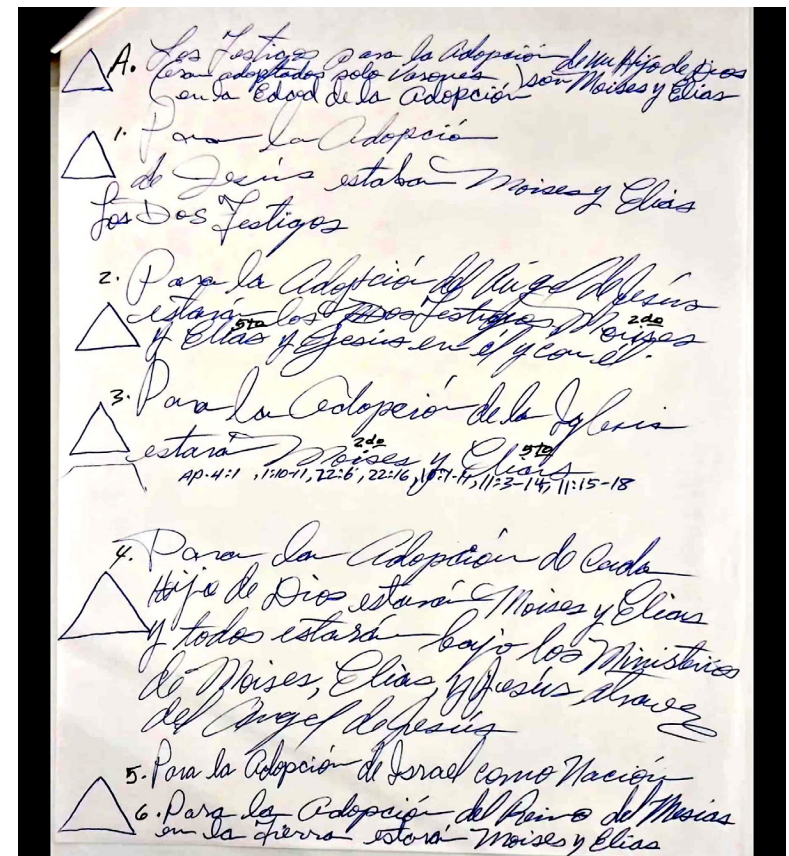 A. Los Testigos para la Adopción de un Hijo de Dios
(eran adoptados solo varones) son Moises y Elías
en la Edad de la Adopción
1. Para la Adopción
de Jesús estaban Moises y Elías
Los Dos Testigos
2. Para la Adopción del Ángel de Jesús
estarán los Dos Testigos, Moises 2do
y Elías 5to y Jesús en él y con él.
3. Para la Adopción de la Iglesia
estará Moises 2do y Elías 5to
AP. 4:1, 1:10-11, 22:6, 22:16, 10:1-11, 11:3-14, 11:15-18
4. Para la Adopción de Cada
Hijo de Dios estarán Moises y Elías
y todos estarán bajo los Ministerios
de Moises, Elías, y Jesús atravez
del Ángel de Jesús
5. Para la Adopción de Israel como Nación
6. Para la Adopción del Reino del Mesías
en la Tierra estará Moises y Elías